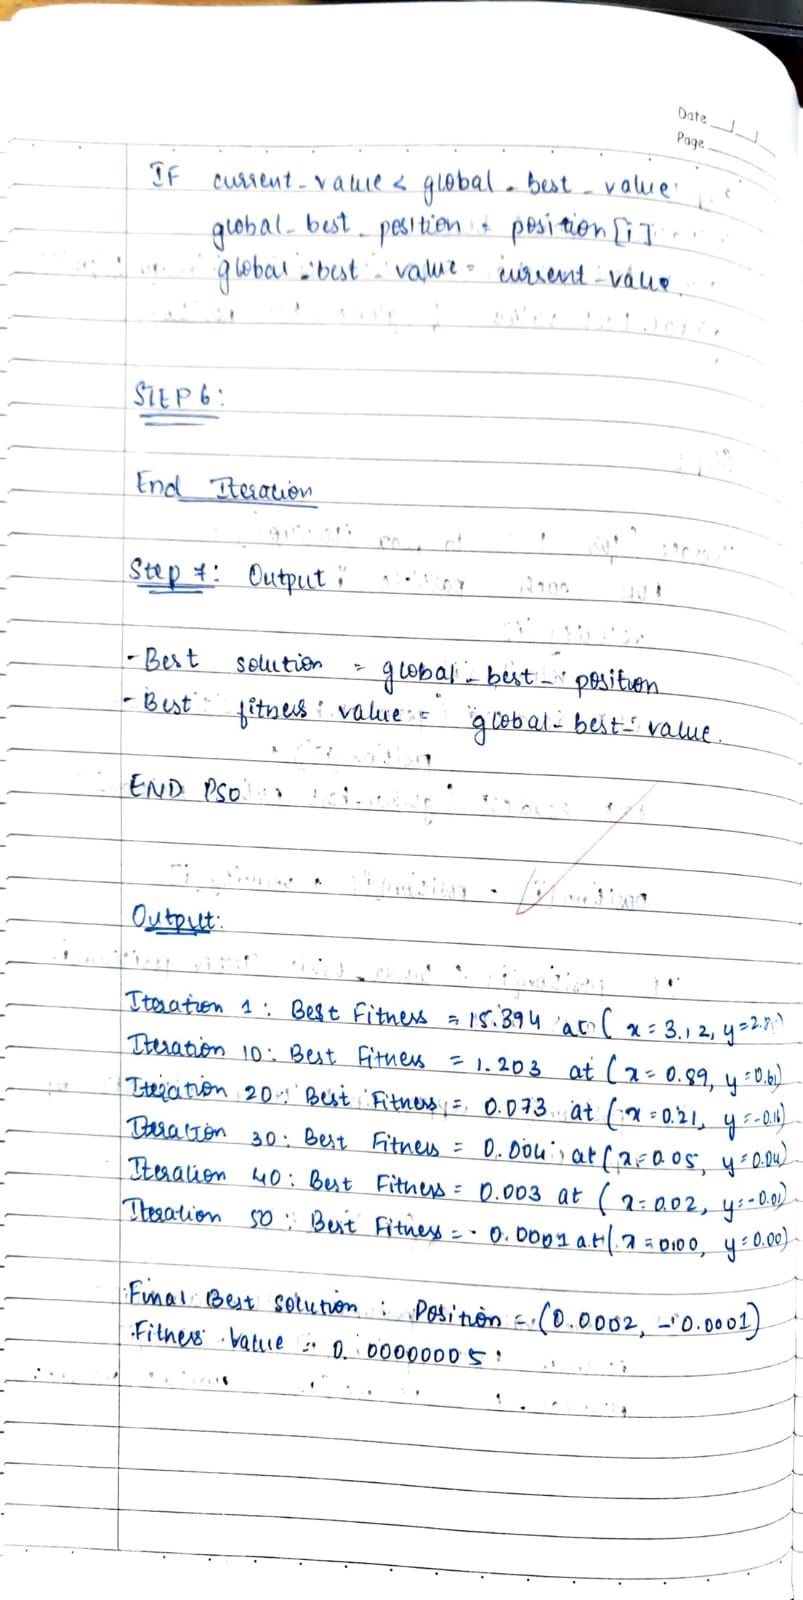 Date
Page
IF current-value < global-best-value
global-best-position = position[i]
global-best-value = current-value.
STEP 6:
End Iteration
Step 7: Output:
- Best solution = global-best-position
- Best fitness value = global-best-value.
END PSO
Output:
Iteration 1: Best Fitness = 15.394 at (x = 3.12, y = 2.8
Iteration 10: Best Fitness = 1.203 at (x = 0.89, y = 0.61)
Iteration 20: Best Fitness = 0.073 at (x = 0.21, y = -0.16)
Iteration 30: Best Fitness = 0.004 at (x = 0.05, y = 0.04)
Iteration 40: Best Fitness = 0.003 at (x = 0.02, y = -0.01)
Iteration 50: Best Fitness = 0.0001 at (x = 0.00, y = 0.00)
Final Best solution: Position = (0.0002, -0.0001)
Fitness Value = 0.00000005